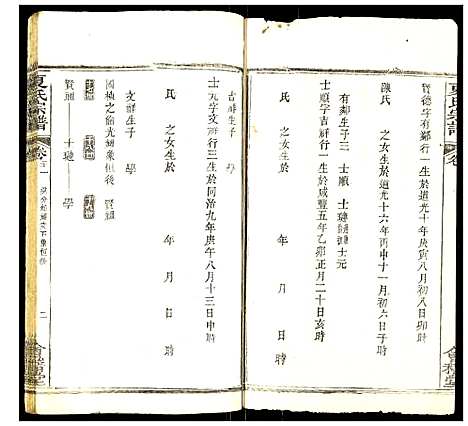 賢德字有鄰行一生於道光十年庚寅八月初八日卯時
陳氏 之女生於道光十六年丙申十一月初六日子時
有鄰生子三 士順 士璉 士元
士順字吉鮮行一生於咸豐五年乙卯正月二十日亥時
氏 之女生於 年 月 日 時
吉鮮生子 學
士元字文鮮行三生於同治九年庚午八月十三日申時
氏 之女生於 年 月 日 時
文鮮生子 學
國楨之飴光朝象恒後 賢涌
賢涌 士璉 學
夏氏宗譜
二
會